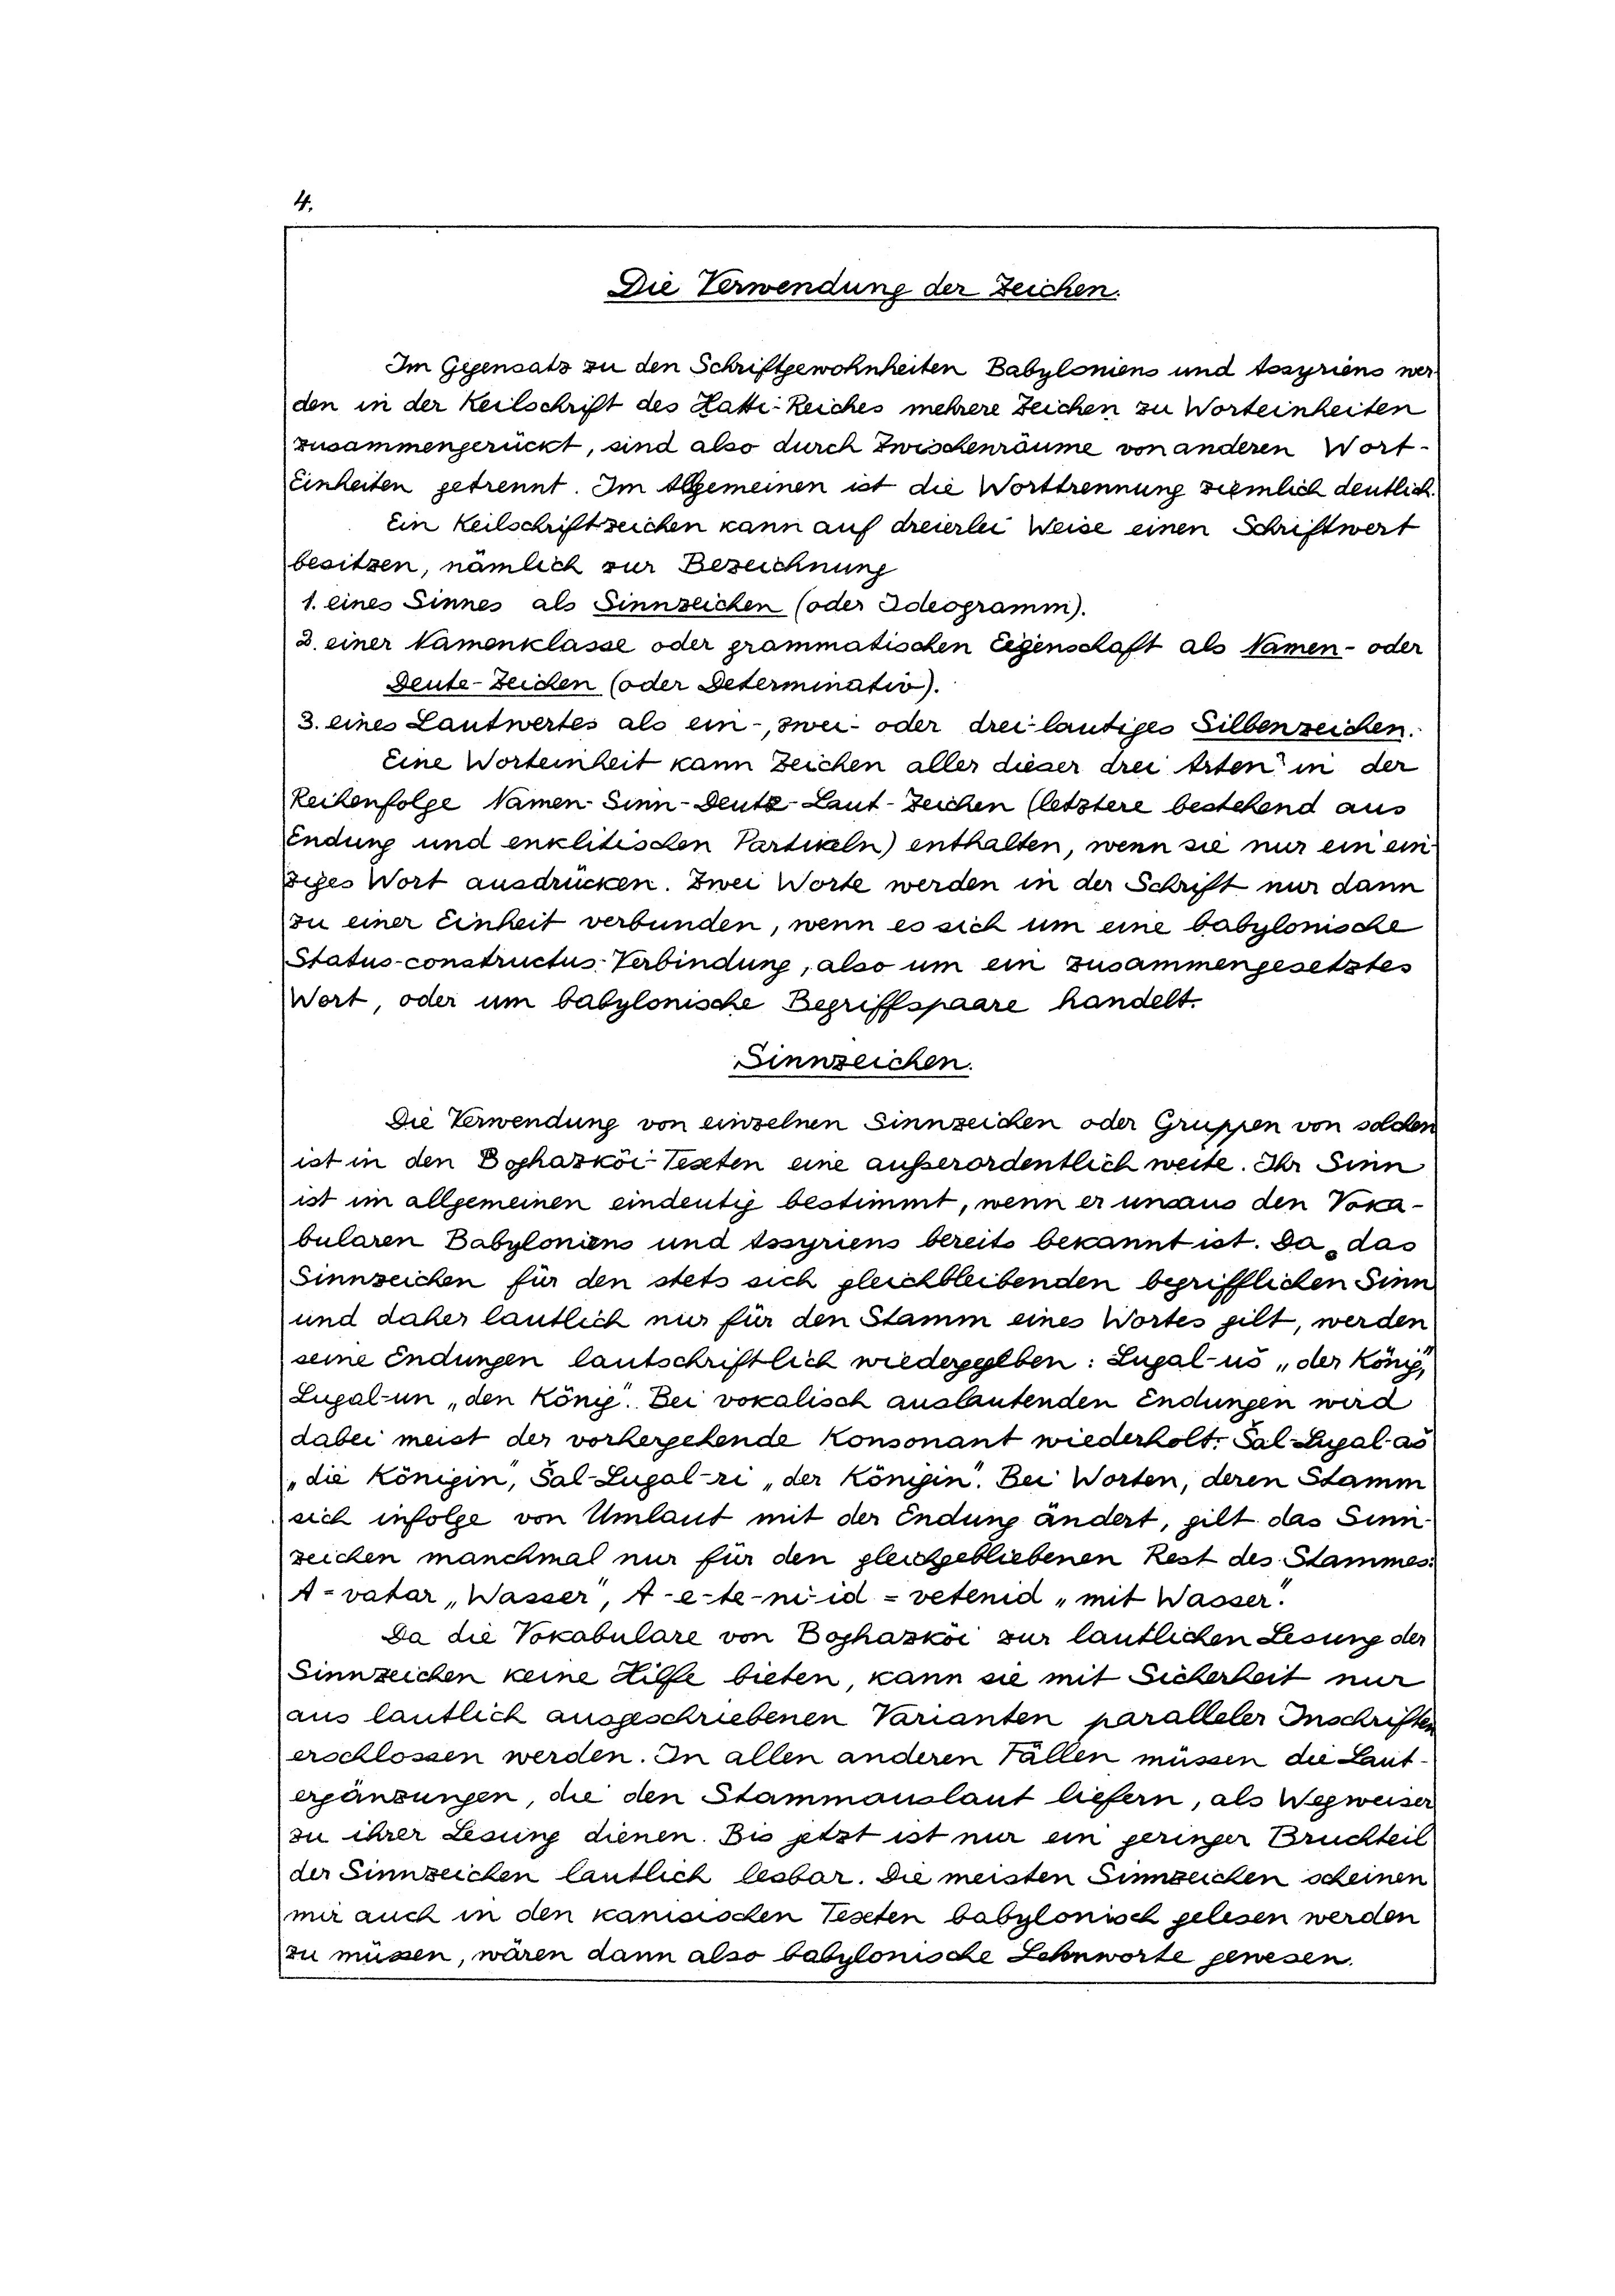 4.
Die Verwendung der Zeichen.
Im Gegensatz zu den Schriftgewohnheiten Babyloniens und Assyriens wer-
den in der Keilschrift des Hatti-Reiches mehrere Zeichen zu Worteinheiten
zusammengerückt, sind also durch Zwischenräume von anderen Wort-
Einheiten getrennt. Im Allgemeinen ist die Worttrennung ziemlich deutlich.
Ein Keilschriftzeichen kann auf dreierlei Weise einen Schriftwert
besitzen, nämlich zur Bezeichnung
1. eines Sinnes als Sinnzeichen (oder Ideogramm).
2. einer Namenklasse oder grammatischen Eigenschaft als Namen- oder
Deute-Zeichen (oder Determinativ).
3. eines Lautwertes als ein-, zwei- oder drei-lautiges Silbenzeichen.
Eine Worteinheit kann Zeichen aller dieser drei Arten in der
Reihenfolge Namen-Sinn-Deute-Laut-Zeichen (letztere bestehend aus
Endung und enklitischen Partikeln) enthalten, wenn sie nur ein ein-
ziges Wort ausdrücken. Zwei Worte werden in der Schrift nur dann
zu einer Einheit verbunden, wenn es sich um eine babylonische
Status-constructus-Verbindung, also um ein zusammengesetztes
Wort, oder um babylonische Begriffspaare handelt.
Sinnzeichen.
Die Verwendung von einzelnen Sinnzeichen oder Gruppen von solchen
ist in den Boghazköi-Texten eine außerordentlich weite. Ihr Sinn
ist im allgemeinen eindeutig bestimmt, wenn er uns aus den Voka-
bularen Babyloniens und Assyriens bereits bekannt ist. Da das
Sinnzeichen für den stets sich gleichbleibenden begrifflichen Sinn
und daher lautlich nur für den Stamm eines Wortes gilt, werden
seine Endungen lautschriftlich wiedergegeben: Lugal-uš „der König",
Lugal-un „den König". Bei vokalisch auslautenden Endungen wird
dabei meist der vorhergehende Konsonant wiederholt: Šal-Lugal-aš
„die Königin", Šal-Lugal-ri „der Königin". Bei Worten, deren Stamm
sich infolge von Umlaut mit der Endung ändert, gilt das Sinn-
zeichen manchmal nur für den gleichgebliebenen Rest des Stammes:
A = vatar „Wasser", A-e-te-ni-id = vetenid „mit Wasser".
Da die Vokabulare von Boghazköi zur lautlichen Lesung der
Sinnzeichen keine Hilfe bieten, kann sie mit Sicherheit nur
aus lautlich ausgeschriebenen Varianten paralleler Inschriften
erschlossen werden. In allen anderen Fällen müssen die Laut-
ergänzungen, die den Stammauslaut liefern, als Wegweiser
zu ihrer Lesung dienen. Bis jetzt ist nur ein geringer Bruchteil
der Sinnzeichen lautlich lesbar. Die meisten Sinnzeichen scheinen
mir auch in den kanisischen Texten babylonisch gelesen werden
zu müssen, wären dann also babylonische Lehnworte gewesen.